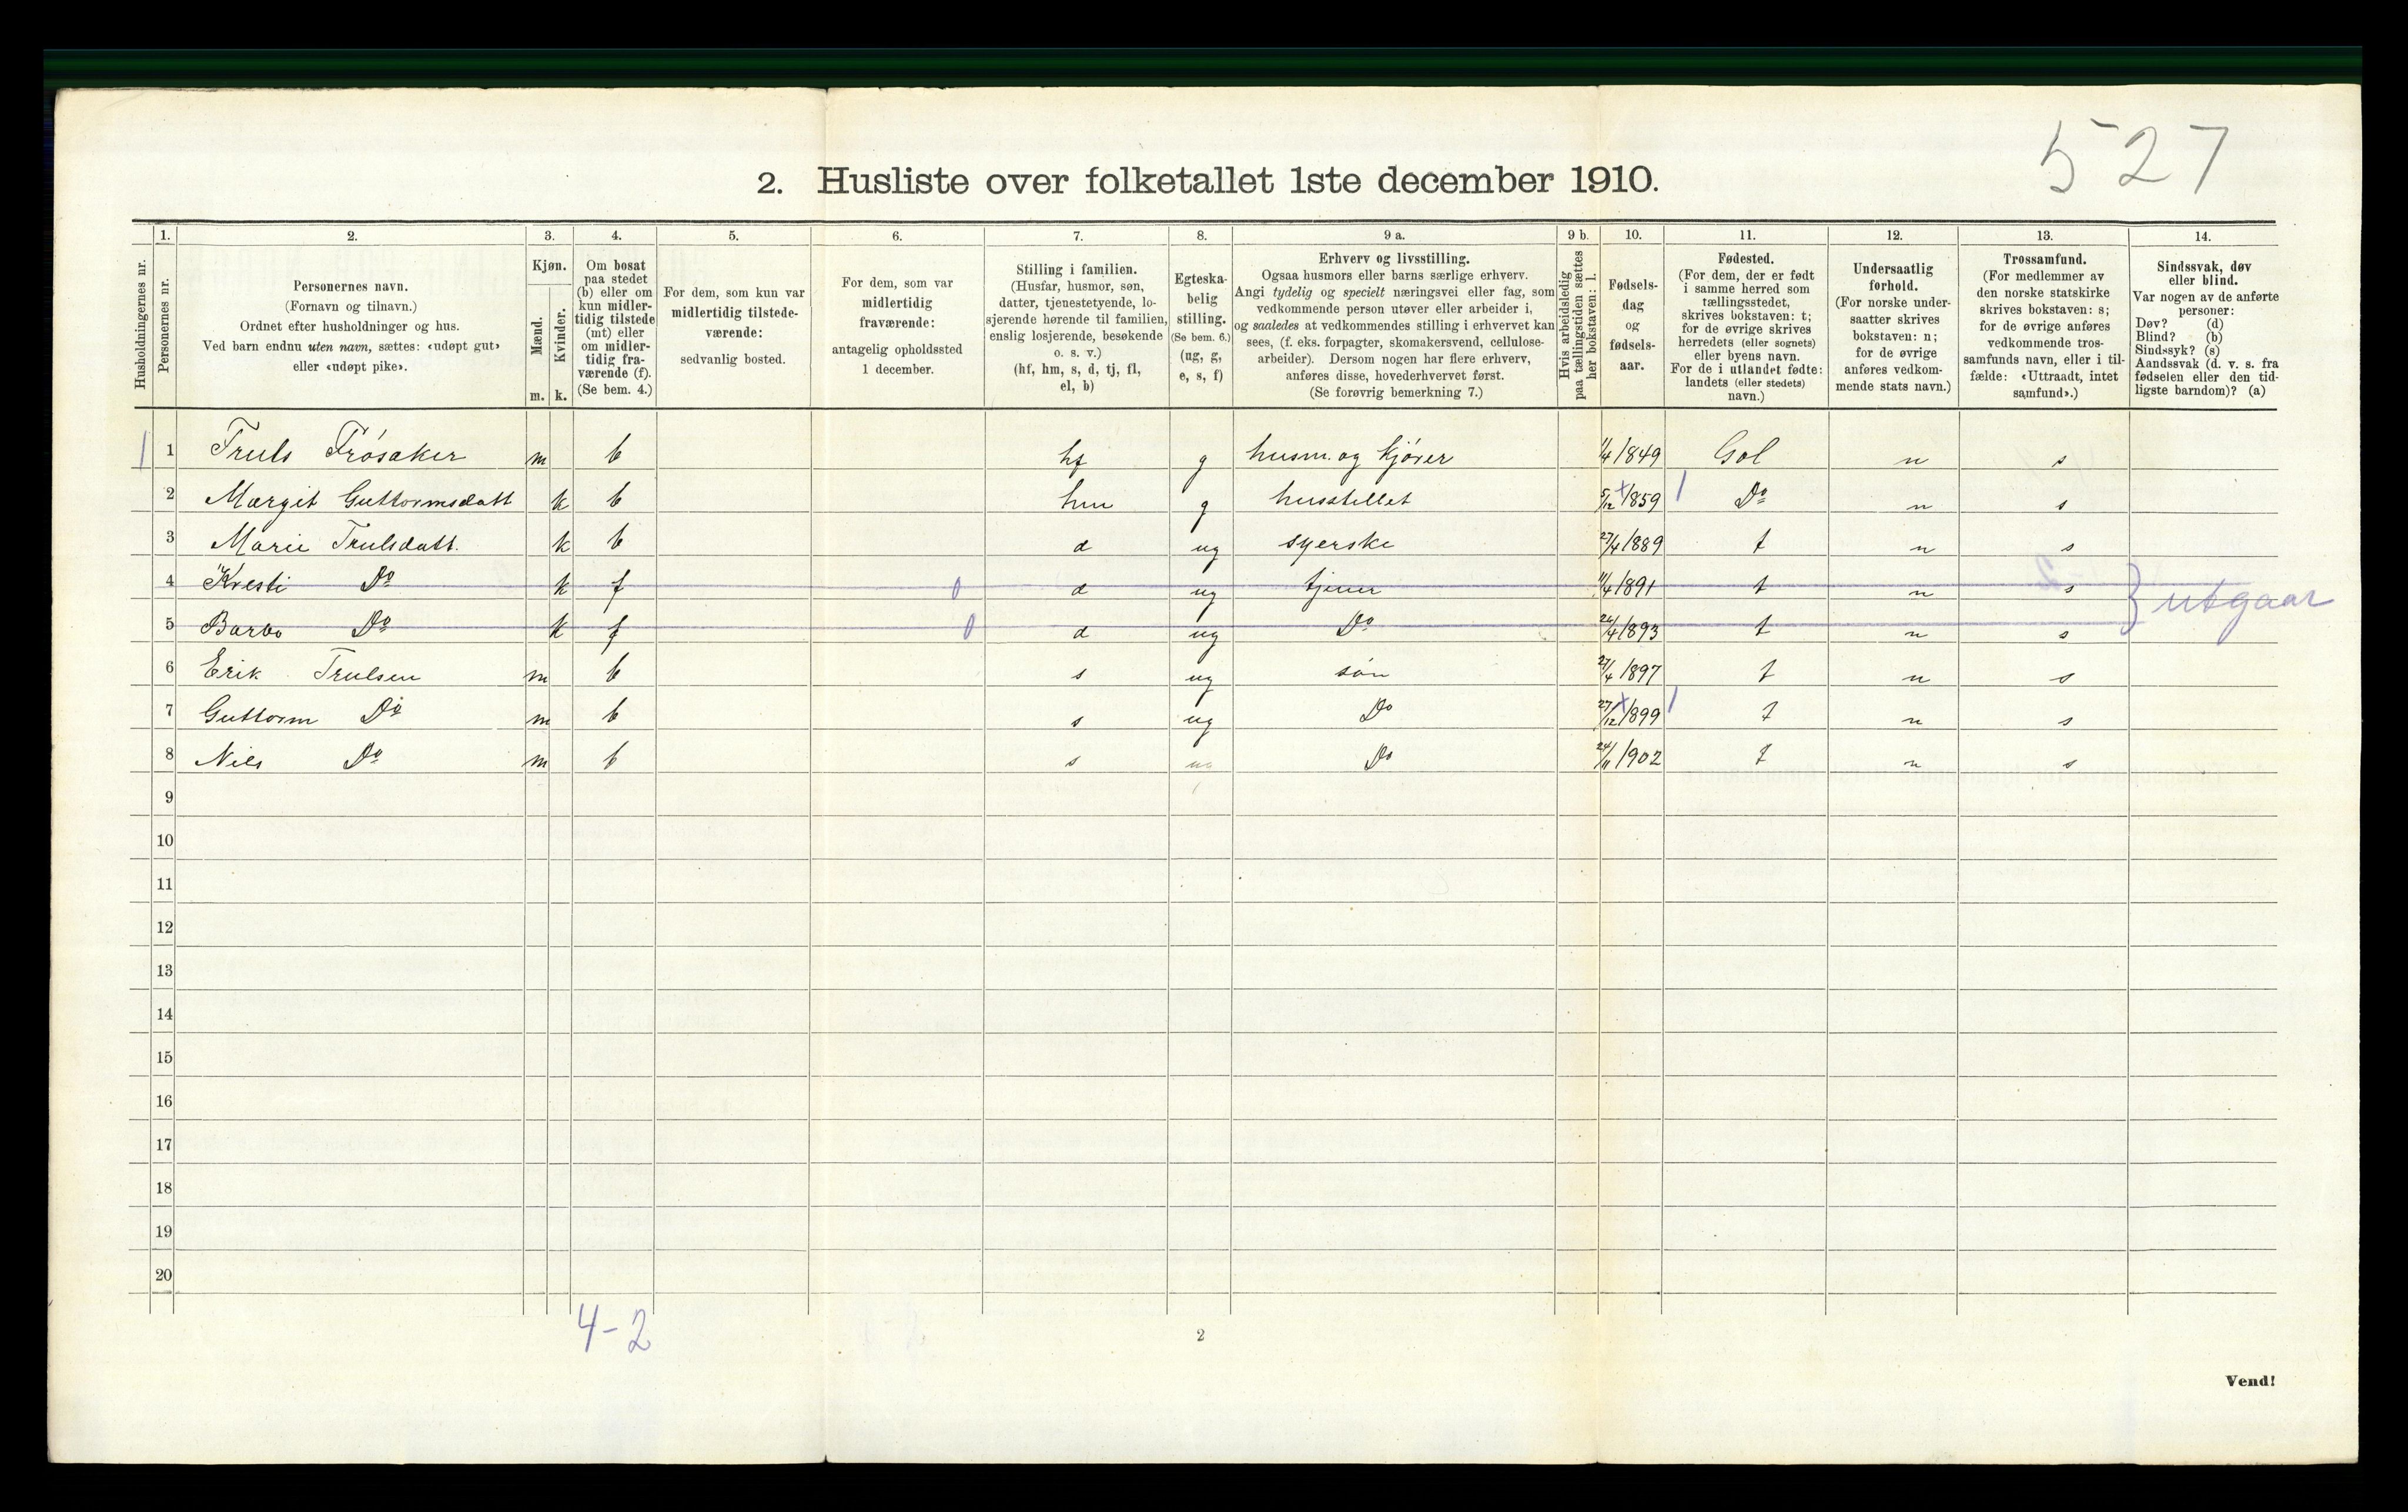 527
2. Husliste over folketallet 1ste december 1910.
Husholdningernes nr.
1. Personernes nr.
2. Personernes navn.
(Fornavn og tilnavn.)
Ordnet efter husholdninger og hus.
Ved barn endnu uten navn, sættes: «udøpt gut»
eller «udøpt pike».
3. Kjøn.
Mænd. m.
Kvinder. k.
4. Om bosat
paa stedet
(b) eller om
kun midler-
tidig tilstede
(mt) eller
om midler-
tidig fra-
værende (f).
(Se bem. 4.)
5. For dem, som kun var
midlertidig tilstede-
værende:
sedvanlig bosted.
6. For dem, som var
midlertidig
fraværende:
antagelig opholdssted
1 december.
7. Stilling i familien.
(Husfar, husmor, søn,
datter, tjenestetyende, lo-
sjerende hørende til familien,
enslig losjerende, besøkende
o. s. v.)
(hf, hm, s, d, tj, fl,
el, b)
8. Egteska-
belig
stilling.
(Se bem. 6.)
(ug, g,
e, s, f)
9 a. Erhverv og livsstilling.
Ogsaa husmors eller barns særlige erhverv.
Angi tydelig og specielt næringsvei eller fag, som
vedkommende person utøver eller arbeider i,
og saaledes at vedkommendes stilling i erhvervet kan
sees, (f. eks. forpagter, skomakersvend, cellulose-
arbeider). Dersom nogen har flere erhverv,
anføres disse, hovederhvervet først.
(Se forøvrig bemerkning 7.)
9 b. Hvis arbeidsledig
paa tællingstiden sættes
her bokstaven: l.
10. Fødsels-
dag
og
fødsels-
aar.
11. Fødested.
(For dem, der er født
i samme herred som
tællingsstedet,
skrives bokstaven: t;
for de øvrige skrives
herredets (eller sognets)
eller byens navn.
For de i utlandet fødte:
landets (eller stedets)
navn.)
12. Undersaatlig
forhold.
(For norske under-
saatter skrives
bokstaven: n;
for de øvrige
anføres vedkom-
mende stats navn.)
13. Trossamfund.
(For medlemmer av
den norske statskirke
skrives bokstaven: s;
for de øvrige anføres
vedkommende tros-
samfunds navn, eller i til-
fælde: «Uttraadt, intet
samfund».)
14. Sindssvak, døv
eller blind.
Var nogen av de anførte
personer:
Døv? (d)
Blind? (b)
Sindssyk? (s)
Aandssvak (d. v. s. fra
fødselen eller den tid-
ligste barndom)? (a)
1 1 Truls Frösaker m b hf g husm. og kjörer 1/4 1849 Gol n s
2 Margit Guttormsdatt k b hm g husstellet 5/12 1859 Do n s
3 Marie Trulsdatt. k b d ug syerske 27/4 1889 t n s
4 Kresti Do k f 0 d ug tjener 11/4 1891 t n s } utgaar
5 Barbo Do k f 0 d ug Do 26/4 1893 t n s
6 Erik Trulsen m b s ug sön 27/4 1897 t n s
7 Guttorm Do m b s ug Do 27/12 1899 t n s
8 Nils Do m b s ug Do 24/11 1902 t n s
9
10
11
12
13
14
15
16
17
18
19
20
4-2
2
Vend!